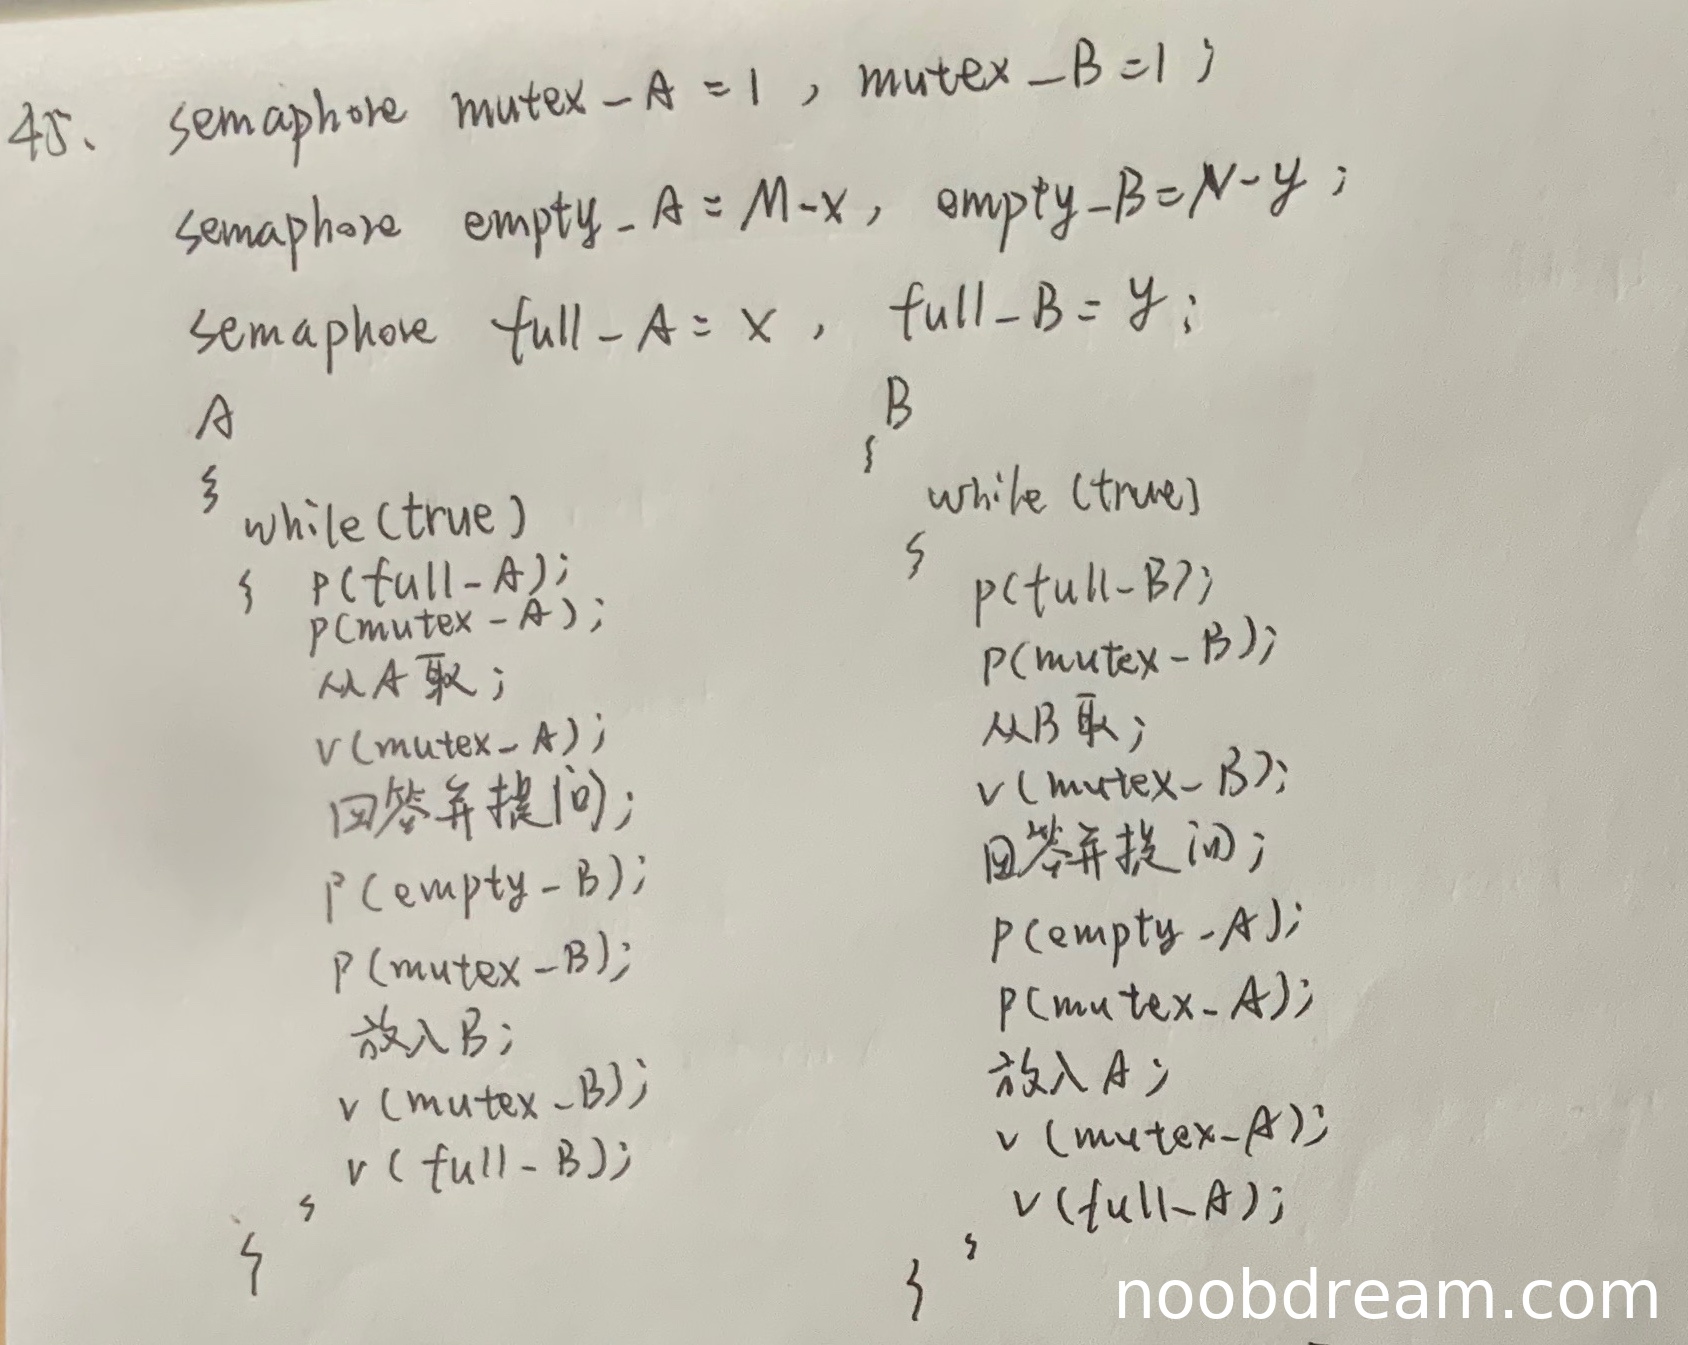 45. semaphore mutex_A = 1 , mutex_B = 1 ;
semaphore empty_A = M-x , empty_B = N-y ;
semaphore full_A = x , full_B = y ;
A
{
while(true)
{ p(full_A);
p(mutex_A);
从A取;
v(mutex_A);
回答并提问;
p(empty_B);
p(mutex_B);
放入B;
v(mutex_B);
v(full_B);
}
}
B
{
while(true)
{
p(full_B);
p(mutex_B);
从B取;
v(mutex_B);
回答并提问;
p(empty_A);
p(mutex_A);
放入A;
v(mutex_A);
v(full_A);
}
}
noobdream.com